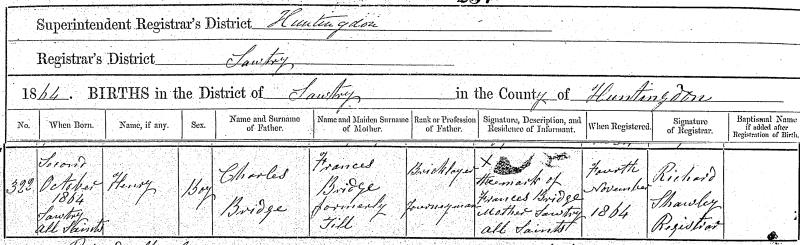 Superintendent Registrar's District Huntingdon
Registrar's District Sawtry
1864. BIRTHS in the District of Sawtry in the County of Huntingdon
No. When Born. Name, if any. Sex. Name and Surname of Father. Name and Maiden Surname of Mother. Rank or Profession of Father. Signature, Description, and Residence of Informant. When Registered. Signature of Registrar. Baptismal Name if added after Registration of Birth.
322
Second
October
1864
Sawtry
All Saints
Henry
Boy
Charles
Bridge
Frances
Bridge
formerly
Till
Bricklayer
Journeyman
X
The mark of
Frances Bridge
Mother Sawtry
All Saints
Fourth
November
1864
Richard
Shawley
Registrar